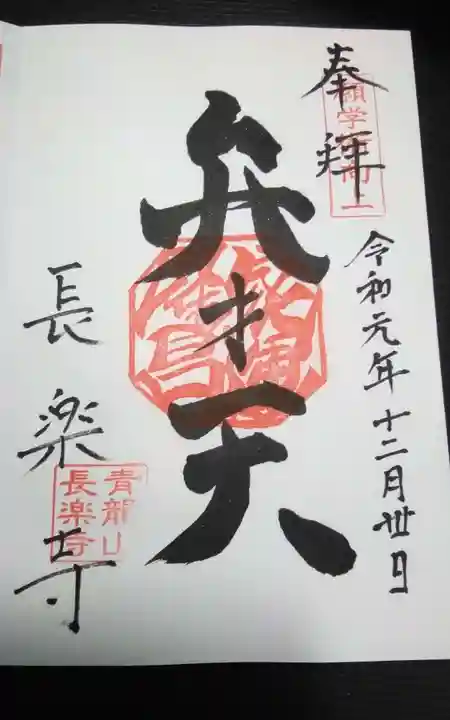 奉拝
令和元年十二月卅日
弁才天
長楽寺
青龍山
長楽寺